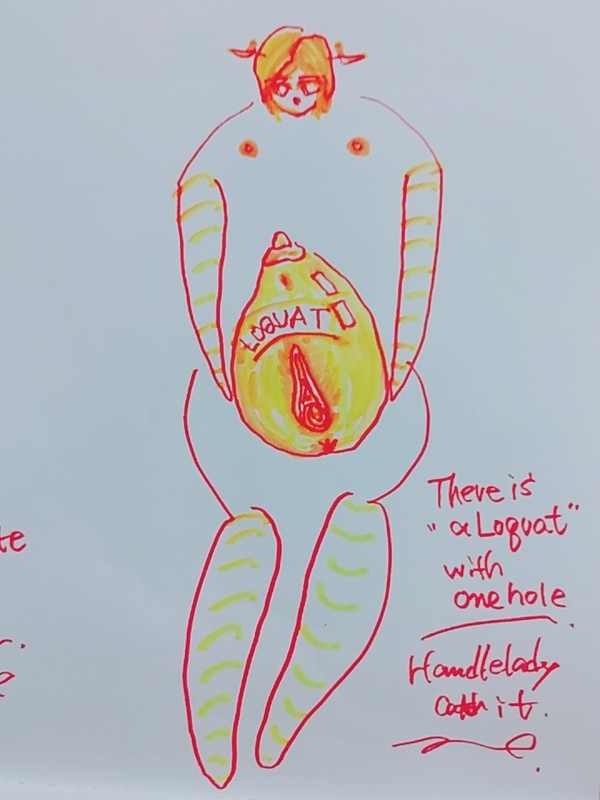 LOQUAT
There is
"a Loquat"
with
one hole
Handlelady
catch it.
te
r.
e